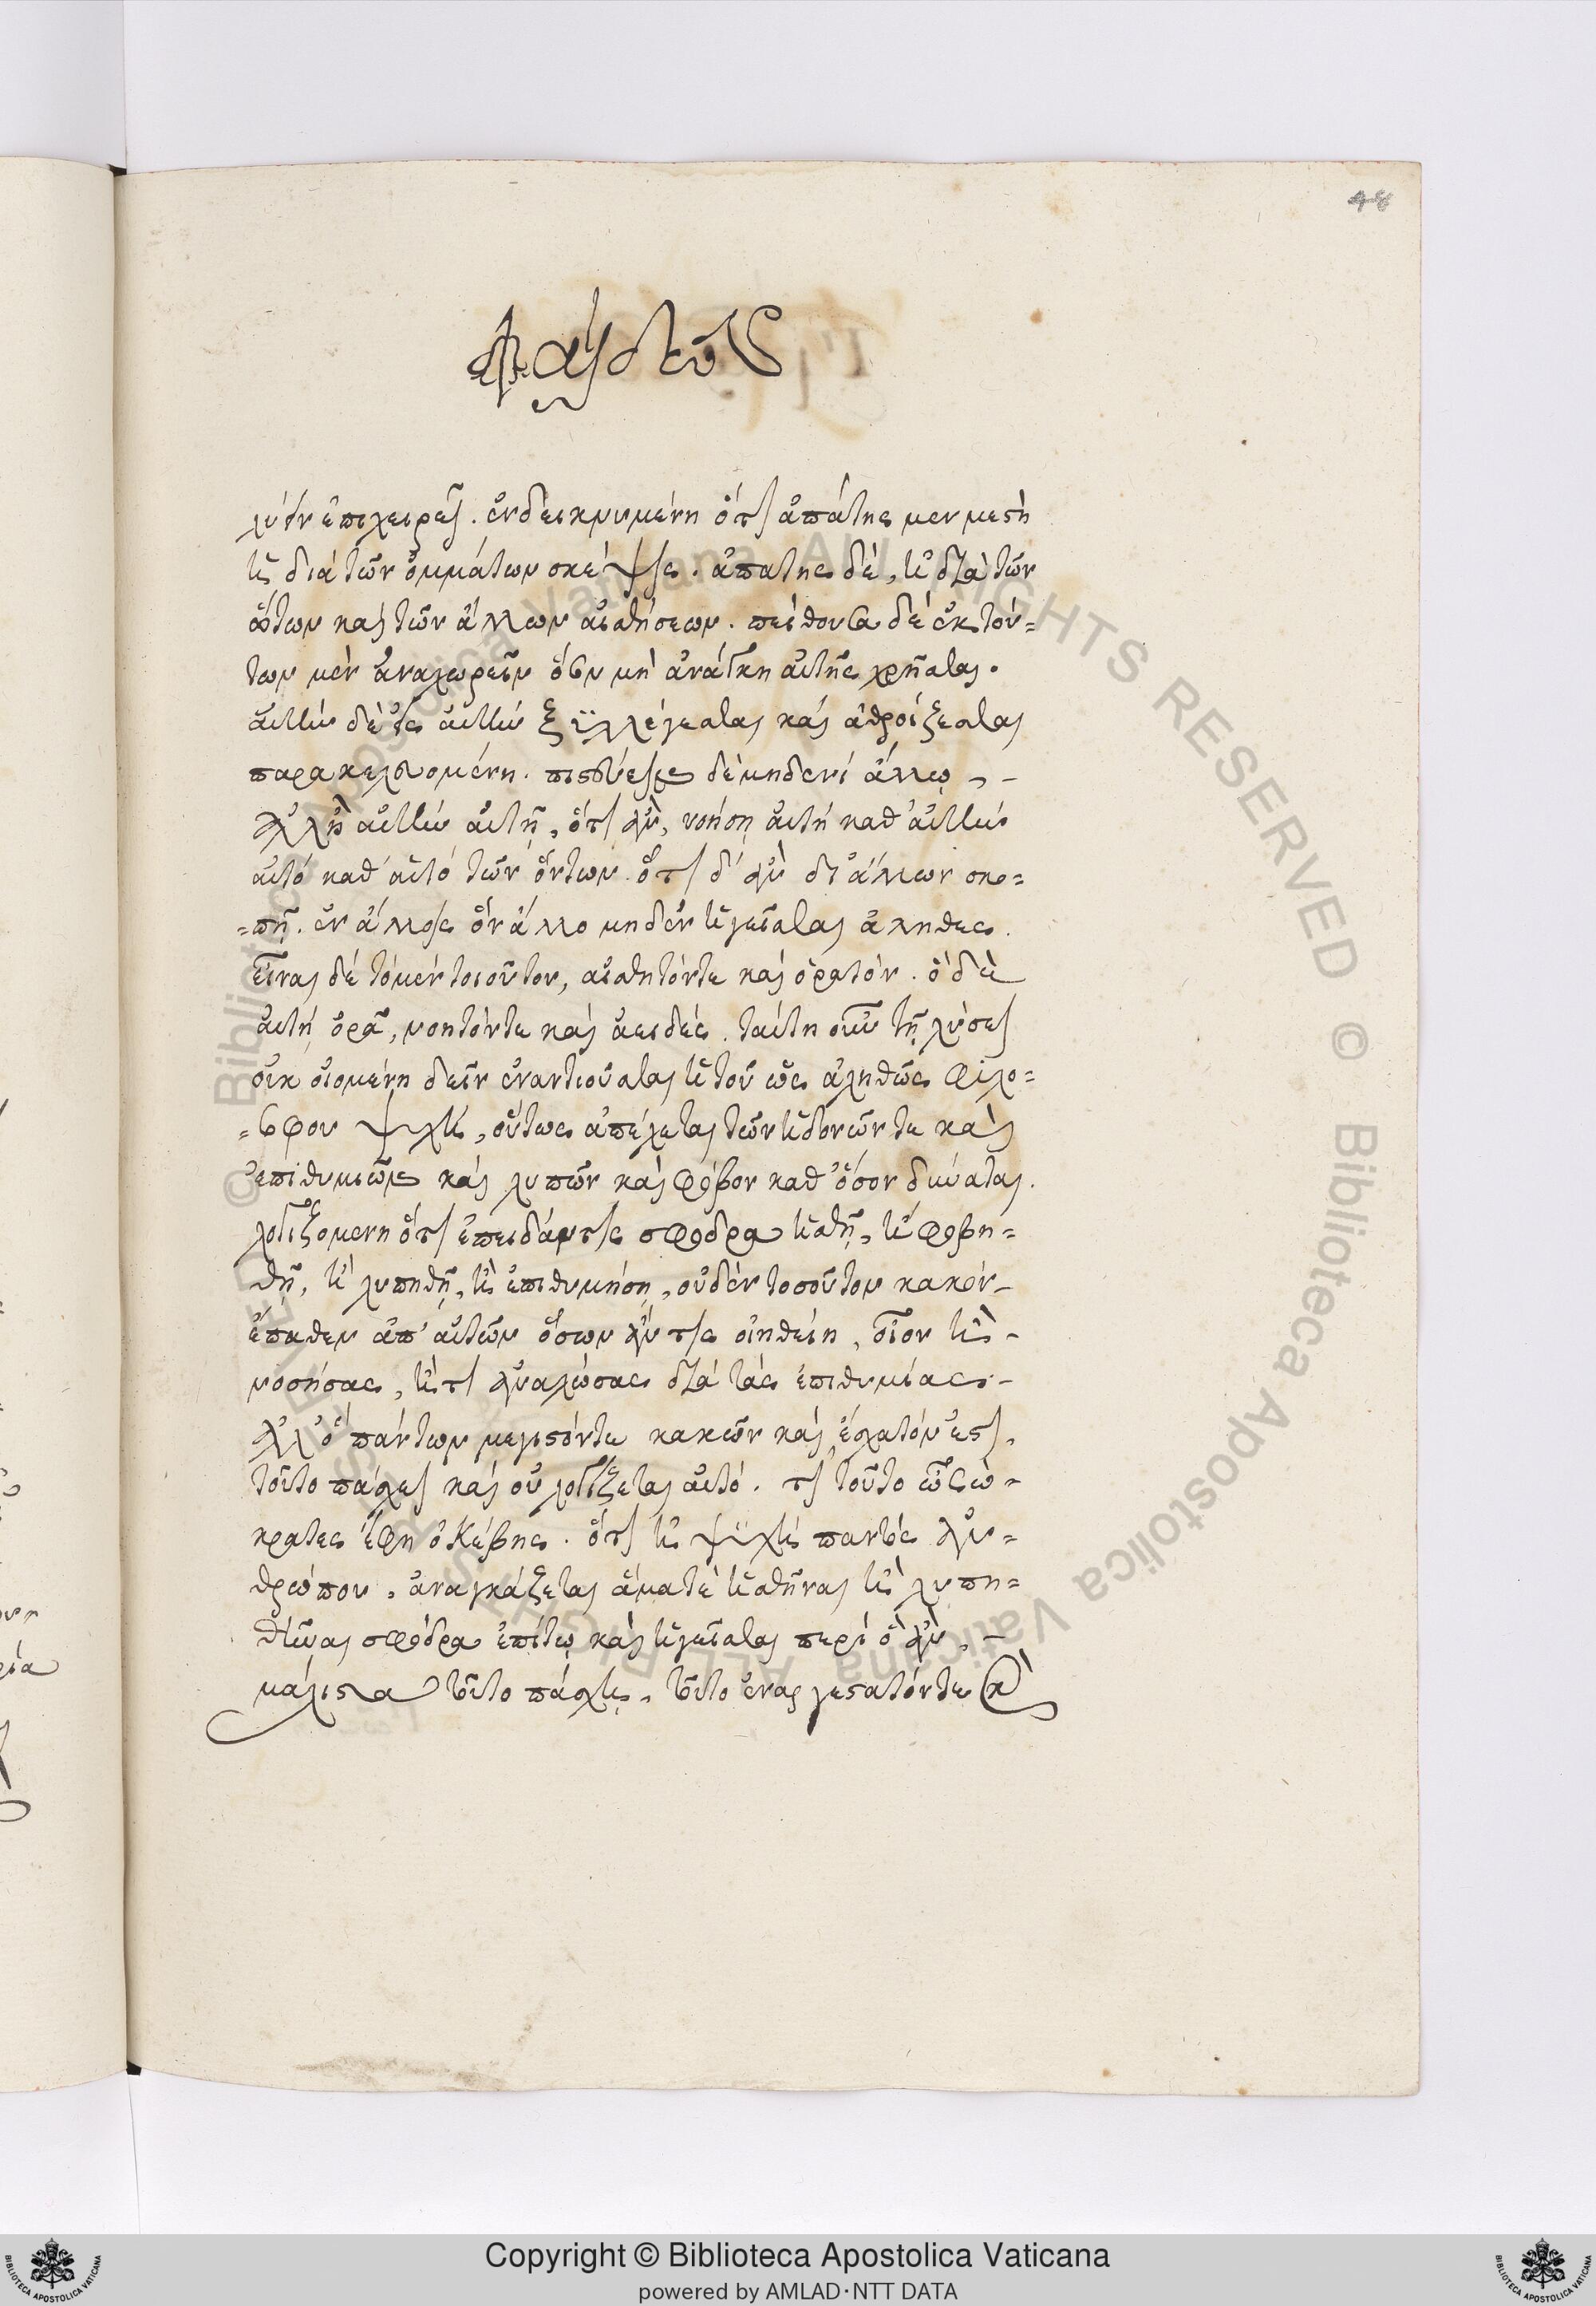 48
λύειν ἐπιχειρεῖ. ἐνδεικνυμένη ὅτι ἀπάτης μεν μεστὴ
ἡ διὰ τῶν ὀμμάτων σκέψις. ἀπατης δὲ, ἡ διὰ τῶν
ὤτων καὶ τῶν ἄλλων αἰσθήσεων. πείθουσα δὲ ἐκ τού=
των μὲν ἀναχωρεῖν ὅσον μὴ ἀνάγκη αὐτῆς χρῆσθαι.
αὐτὴν δὲ εἰς αὐτὴν ξυλλέγεσθαι καὶ ἀθροίζεσθαι
παρακελευομένη. πιστεύειν δὲ μηδενί ἄλλῳ, -
ἀλλ' ἢ αὐτὴν αὐτῇ, ὅτι ἂν, νοήσῃ αὐτὴ καθ' αὑτὴν
αὐτό καθ' αὑτό τῶν ὄντων. ὅτι δ' ἂν δι' ἄλλων σκο=
=πῇ. ἐν ἄλλοις ὂν ἄλλο μηδὲν ἡγεῖσθαι ἀληθες.
εἶναι δὲ τὸ μὲν τοιοῦτον, αἰσθητόν τε καὶ ὁρατόν. ὃ δὲ
αὐτὴ ὁρᾷ, νοητόν τε καὶ ἀειδές. ταύτῃ οὖν τῇ λύσει
οὐκ οἰομένη δεῖν ἐναντιοῦσθαι ἡ τοῦ ὡς ἀληθῶς φιλο=
=σόφου ψυχὴ, οὕτως ἀπέχεται τῶν ἡδονῶν τε καὶ
ἐπιθυμιῶν καὶ λυπῶν καὶ φόβον καθ' ὅσον δύναται.
λογιζομενη ὅτι ἐπειδάν τις σφοδρα ἡσθῇ, ἢ φοβη=
θῇ, ἢ λυπηθῇ, ἢ ἐπιθυμήσῃ, οὐδὲν τοσοῦτον κακὸν -
ἔπαθεν ἀπ' αὐτῶν ὅσων ἄν τις οἰηθείη, οἷον ἢ -
νοσήσας, ἤ τι ἀναλώσας διὰ τὰς ἐπιθυμίας. -
ἀλλ' ὃ πάντων μέγιστόν τε κακῶν καὶ ἔσχατόν ἐστι,
τοῦτο πάσχει καὶ οὐ λογίζεται αὐτό. τί τοῦτο ὦ Σώ-
κρατες ἔφη ὁ Κέβης. ὅτι ἡ ψυχὴ παντὸς ἀν=
θρώπου, ἀναγκάζεται ἅμα τὲ ἡσθῆναι ἢ λυπη=
θῆναι σφόδρα ἐπί τῳ καὶ ἡγεῖσθαι περὶ ὃ ἂν, -
μάλιστα τοῦτο πάσχῃ, τοῦτο ἐναργεστατόν τε κὶ
Copyright © Biblioteca Apostolica Vaticana
powered by AMLAD·NTT DATA